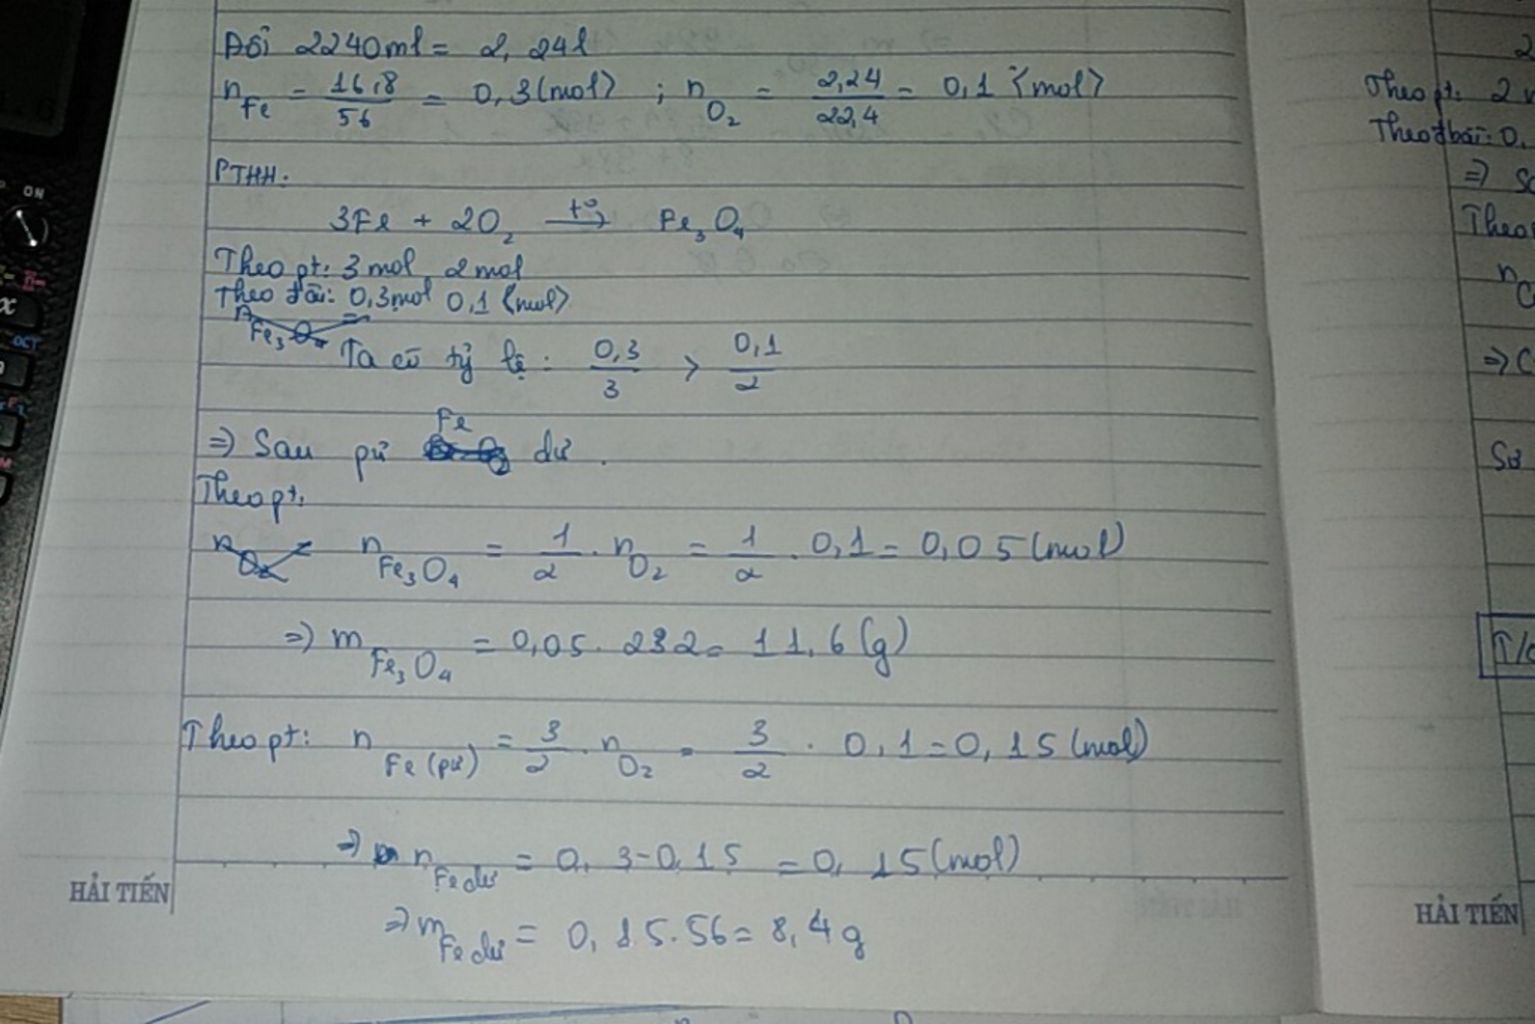 Đổi 2240ml = 2,24l
n Fe = 16,8/56 = 0,3(mol) ; n O2 = 2,24/22,4 = 0,1 (mol)
PTHH:
3Fe + 2O2 t°→ Fe3O4
Theo pt: 3mol 2mol
Theo đ bài: 0,3mol 0,1 (mol)
Fe3O4 =
Ta có tỷ lệ: 0,3/3 > 0,1/2
⇒ Sau pứ Fe dư.
Theo pt:
n Fe3O4 = 1/2 . n O2 = 1/2 . 0,1 = 0,05 (mol)
⇒ m Fe3O4 = 0,05 . 232 = 11,6 (g)
Theo pt: n Fe (pứ) = 3/2 . n O2 = 3/2 . 0,1 = 0,15 (mol)
⇒ n Fe dư = 0,3 - 0,15 = 0,15 (mol)
⇒ m Fe dư = 0,15 . 56 = 8,4g
HẢI TIẾN
Theo pt: 2
Theo đbài: 0,
⇒
Theo
n
⇒ C
HẢI TIẾN
ON
OCT
x